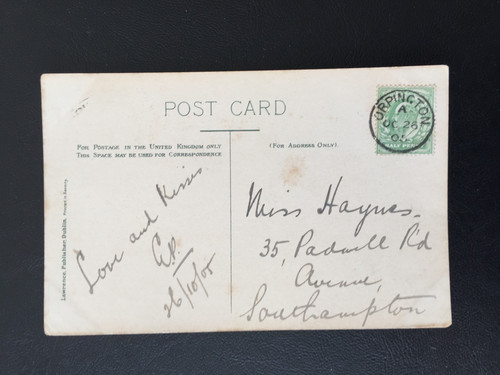 POST CARD
FOR POSTAGE IN THE UNITED KINGDOM ONLY
THIS SPACE MAY BE USED FOR CORRESPONDENCE
(FOR ADDRESS ONLY).
ORPINGTON
A
OC 26
05
HALF PENNY
Lawrence, Publisher, Dublin, Printed in Saxony.
Love and Kisses
E.P.
26/10/05
Miss Haynes.
35, Padwell Rd
Avenue,
Southampton